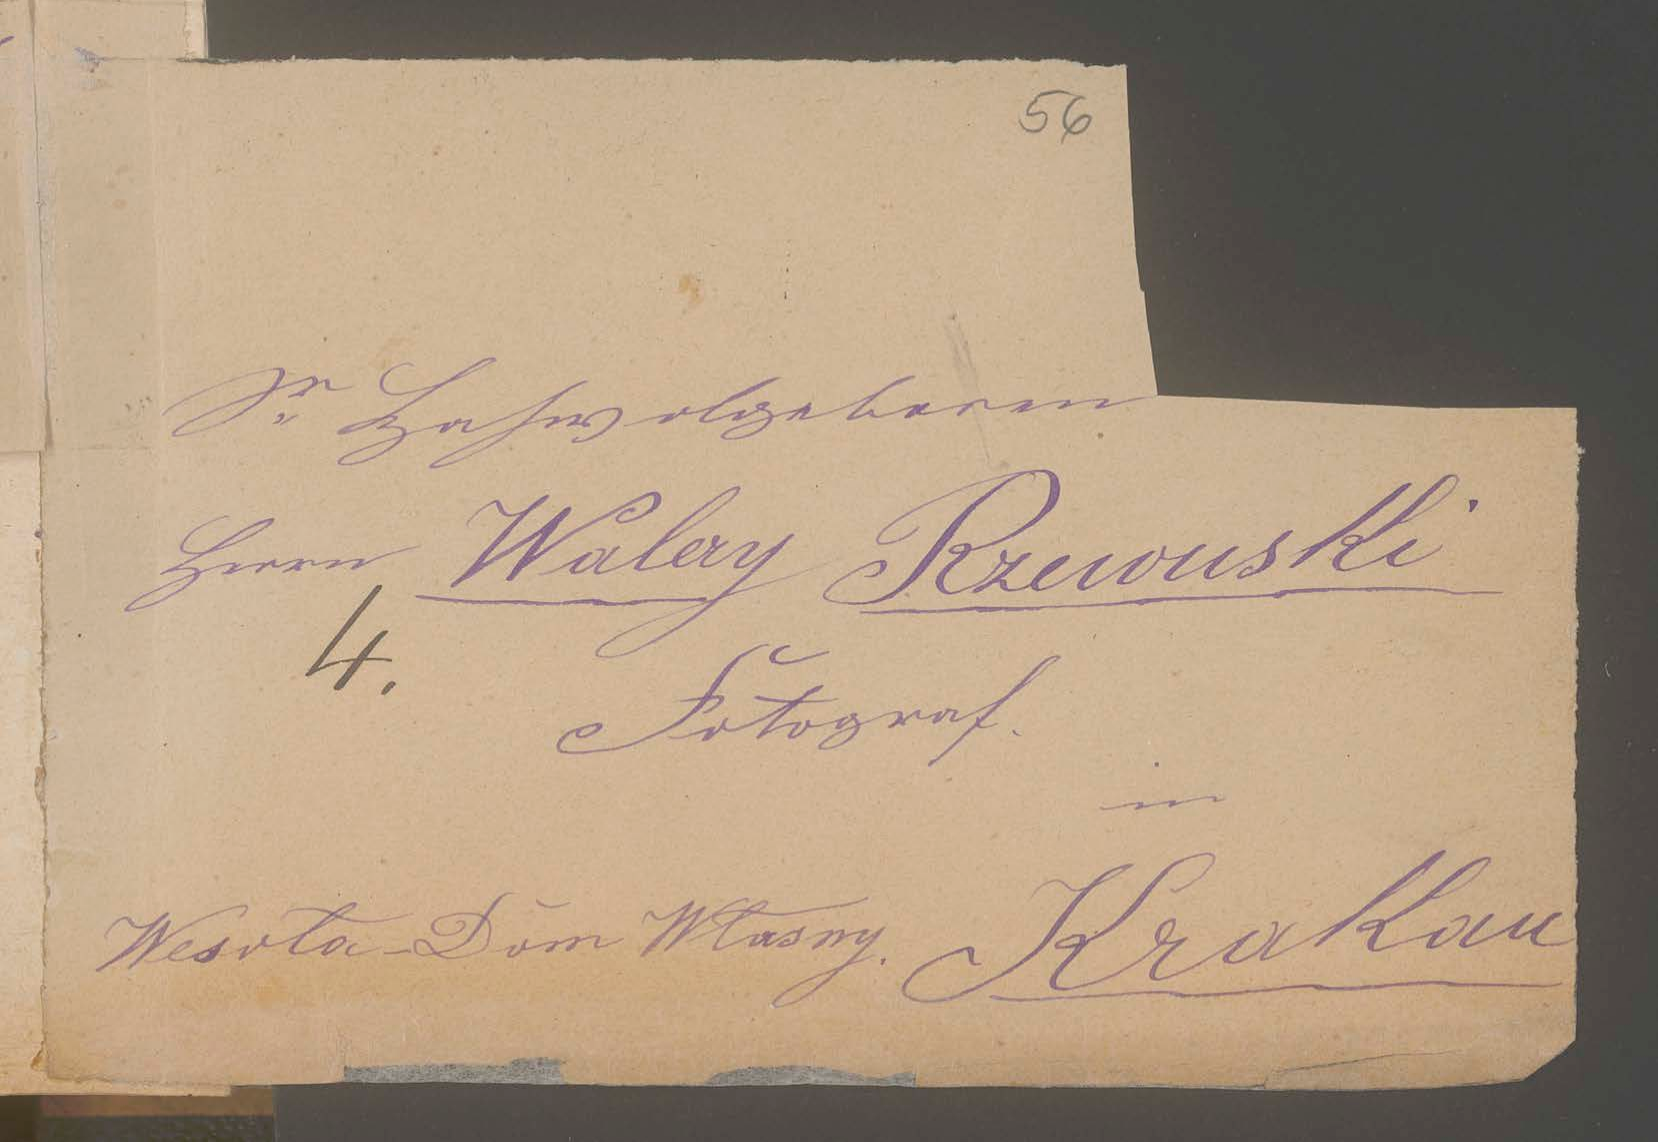 56
Sr Hochwolgeboren
Herrn Walery Rzewuski
4.
Fotograf.
in
Wesoła - Dóm Własny. Krakau